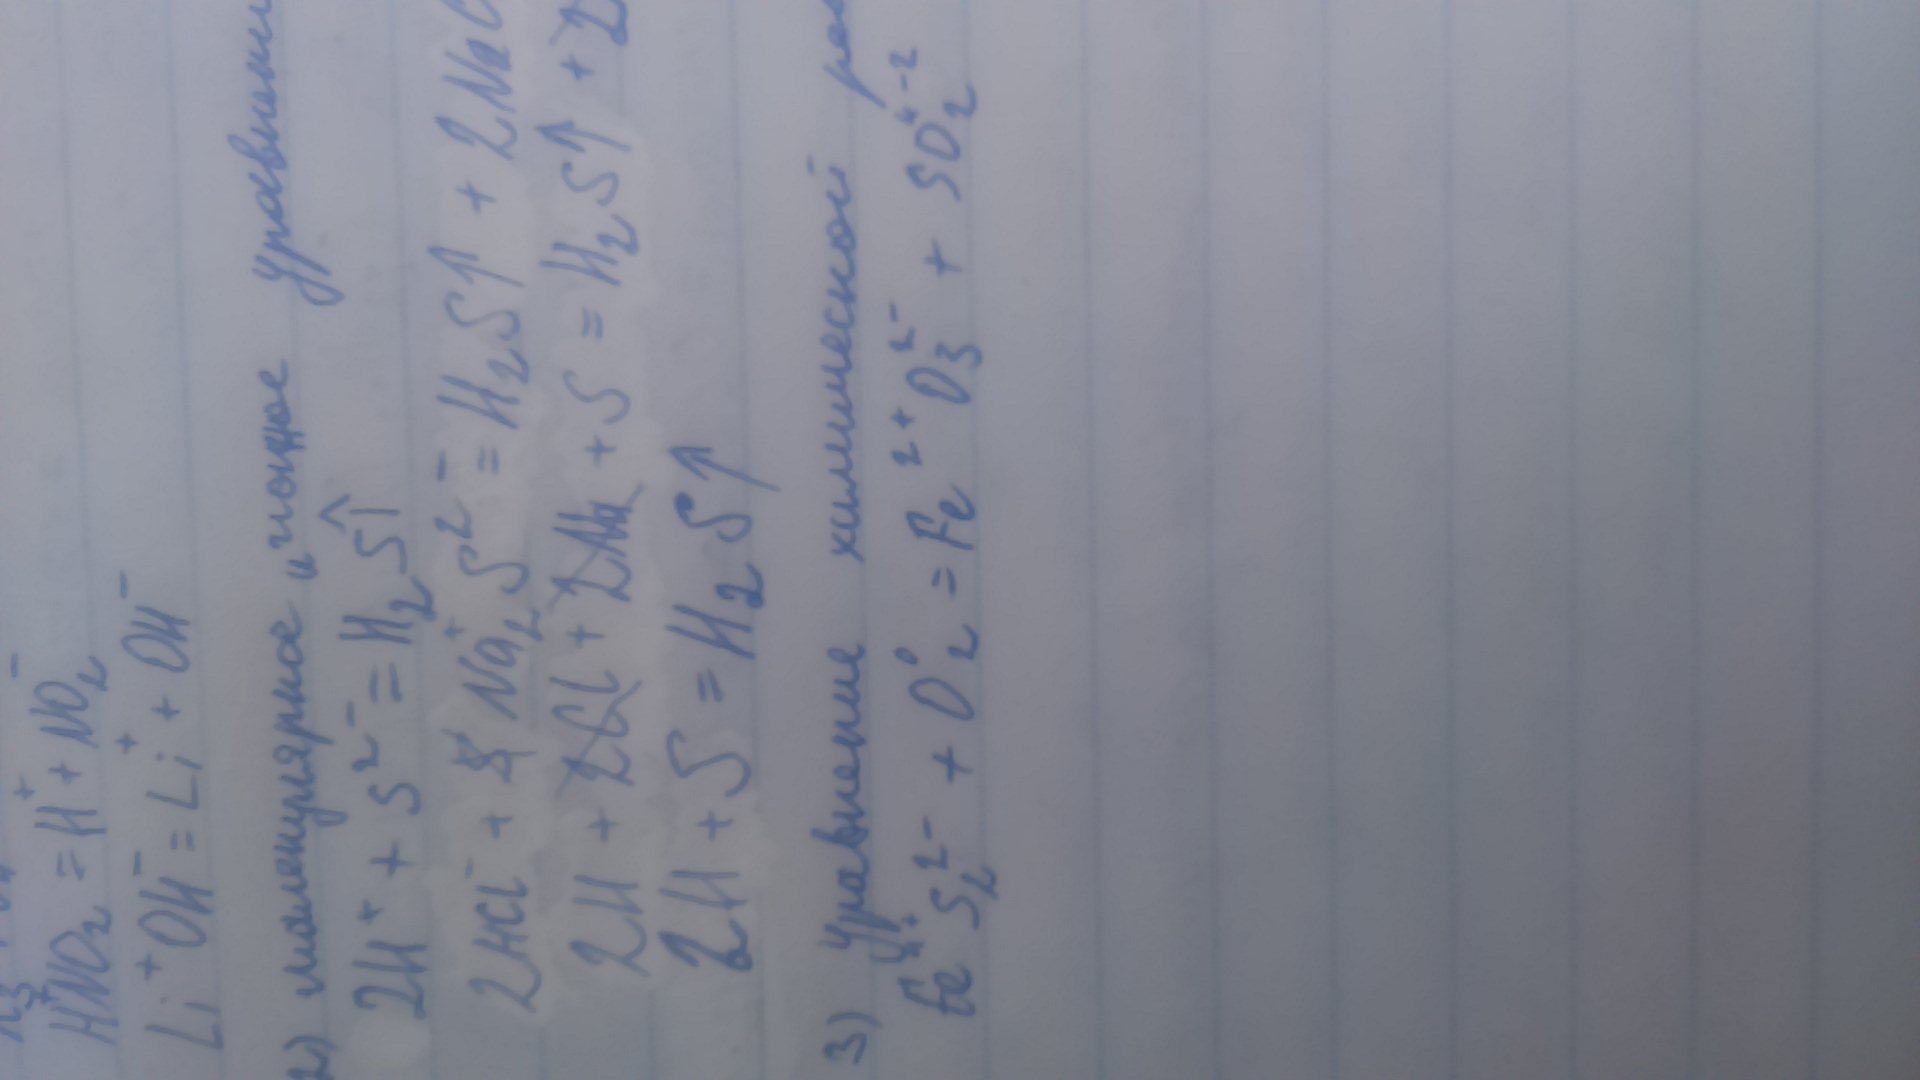 HNO₂ = H⁺ + NO₂⁻
Li⁺OH⁻ = Li⁺ + OH⁻
2) молекулярное и ионное
2H⁺ + S²⁻ = H₂S↑
2HCl⁻ + Na₂⁺S²⁻ = H₂S↑ + 2NaC
2H + 2Cl + 2Na + S = H₂S↑ + 2
2H + S = H₂S↑
3) Уравнение химической
Fe⁴⁺S₂²⁻ + O₂⁰ = Fe²⁺O₃²⁻ + SO₂⁴⁻²